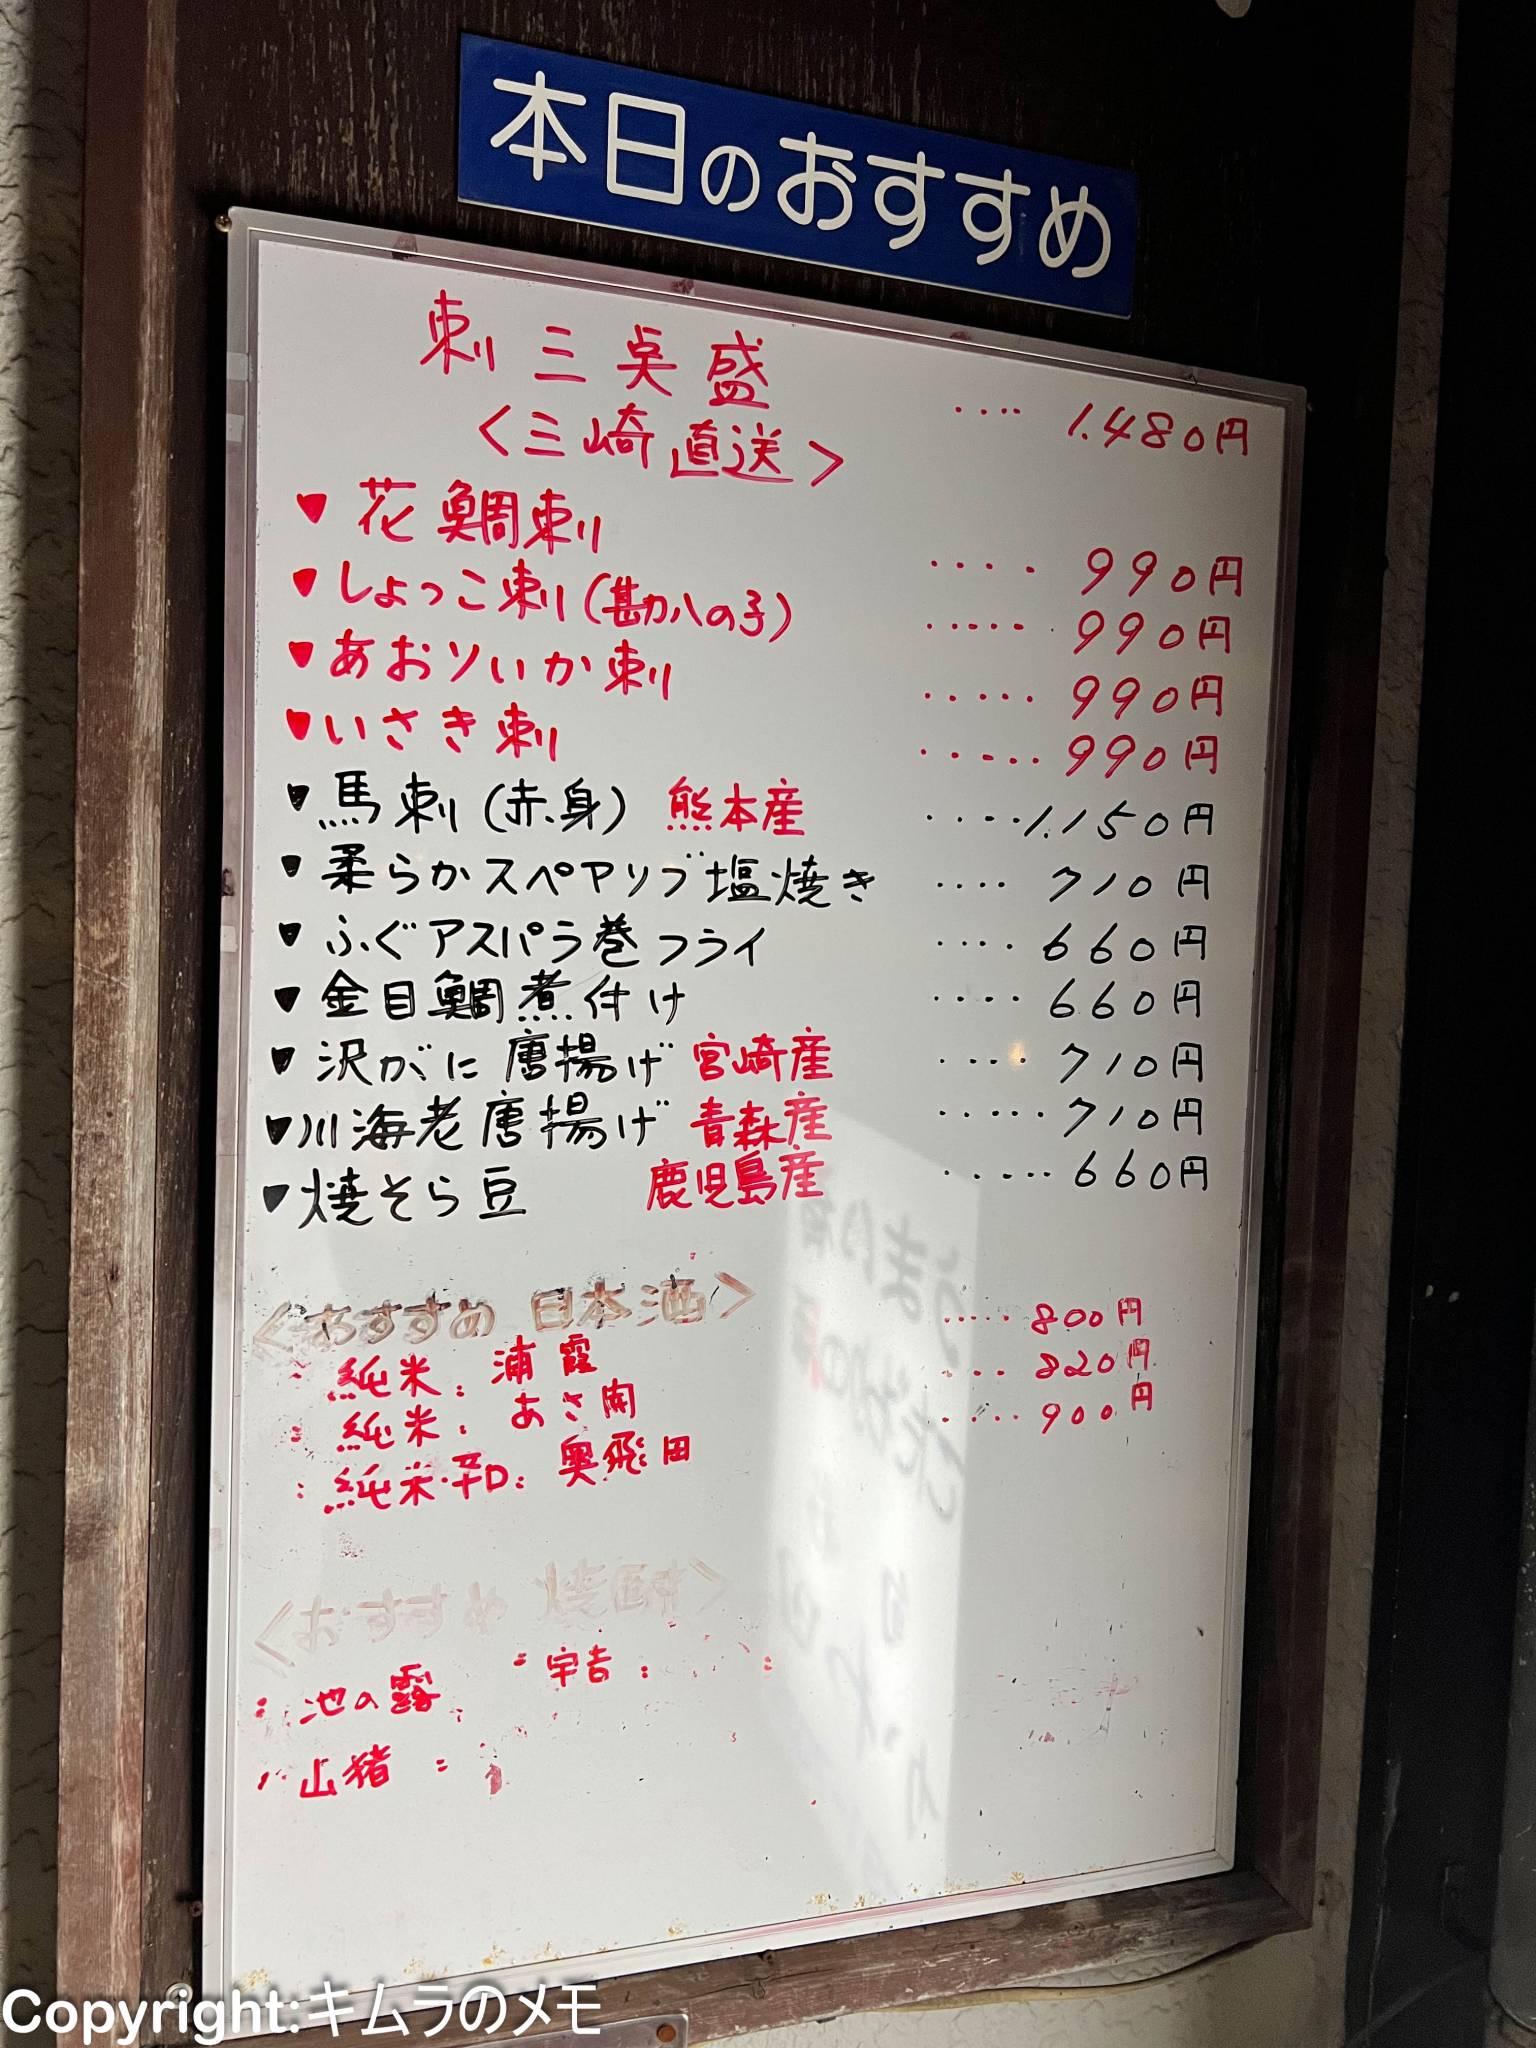 本日のおすすめ
刺三点盛 ････ 1.480円
<三崎直送>
▼花鯛刺 ････ 990円
▼しょっこ刺(勘八の子) ･････ 990円
▼あおりいか刺 ･････ 990円
▼いさき刺 ･････ 990円
▼馬刺(赤身) 熊本産 ････1.150円
▼柔らかスペアリブ塩焼き ････ 710円
▼ふぐアスパラ巻フライ ････ 660円
▼金目鯛煮付け ････ 660円
▼沢がに唐揚げ 宮崎産 ････ 710円
▼川海老唐揚げ 青森産 ･････ 710円
▼焼そら豆 鹿児島産 ･････ 660円
<おすすめ 日本酒>
: 純米: 浦霞 ･････ 800円
: 純米: あさ開 ･･･ 820円
: 純米・辛口: 奥飛田 ････ 900円
<おすすめ 焼酎>
: 池の露 : 宇吉 :
: 山猪 :
Copyright:キムラのメモ